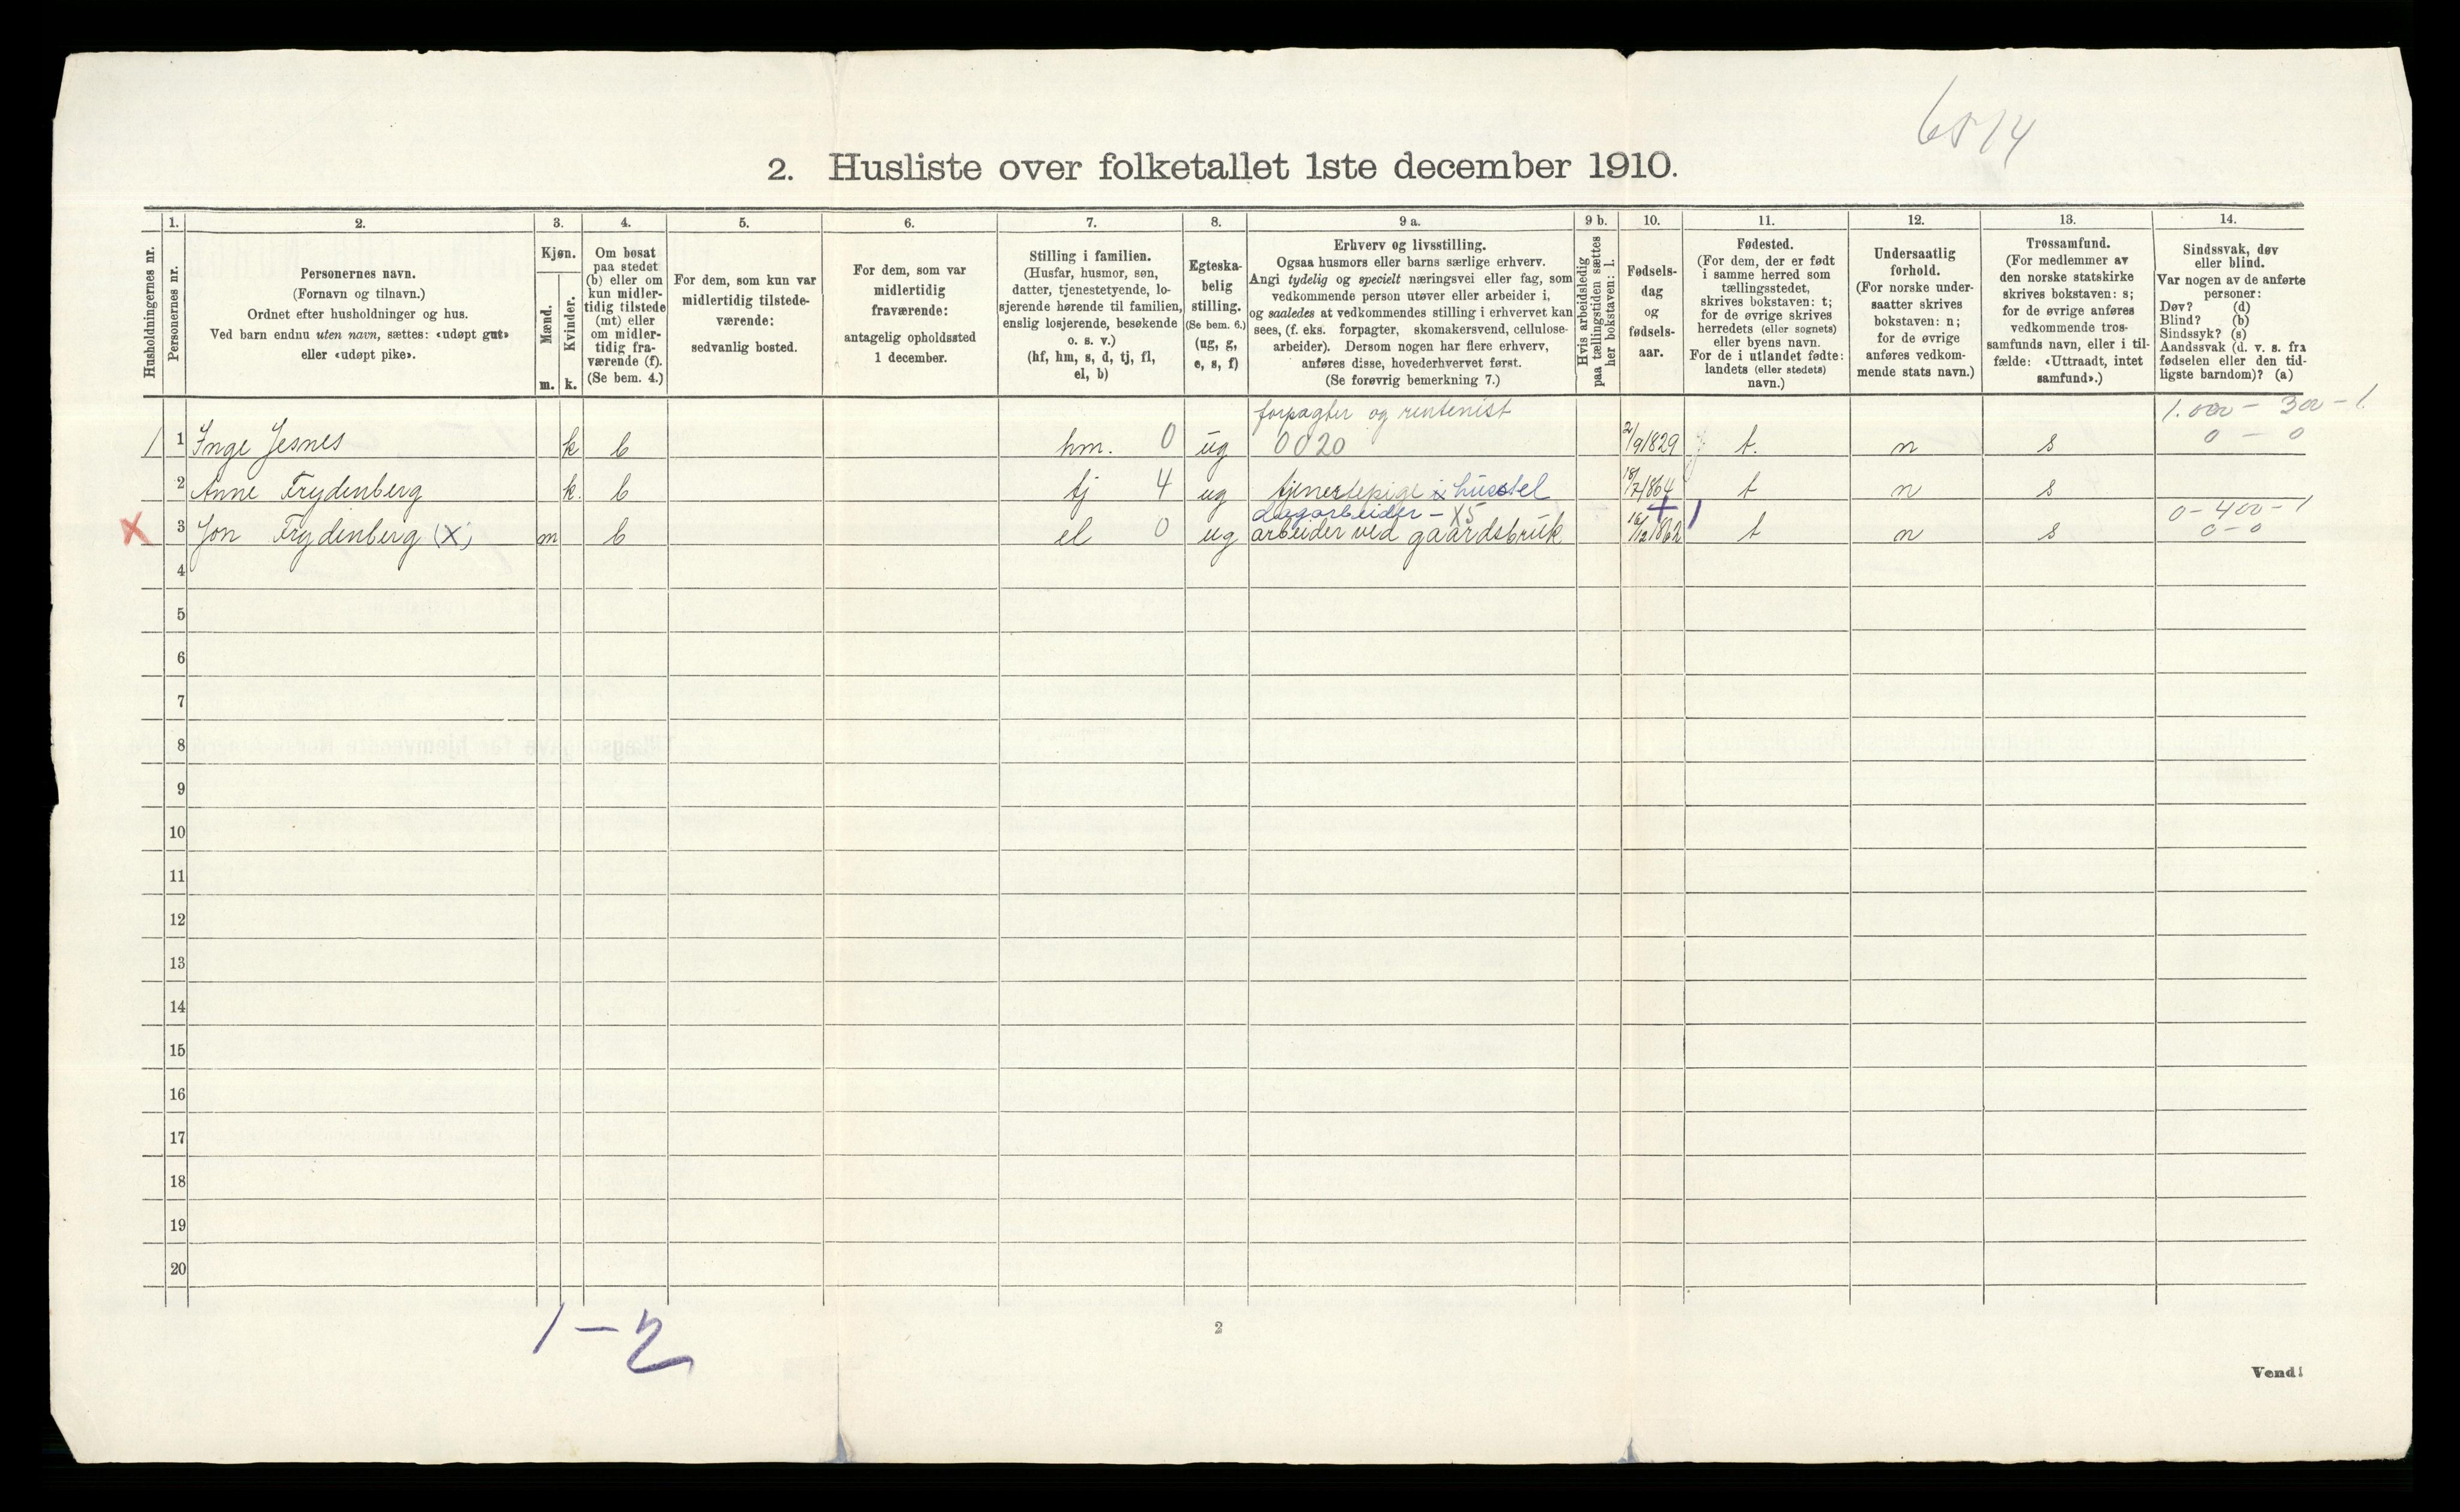 6514
2. Husliste over folketallet 1ste december 1910.
Husholdningernes nr.
1.
Personernes nr.
2.
Personernes navn.
(Fornavn og tilnavn.)
Ordnet efter husholdninger og hus.
Ved barn endnu uten navn, sættes: «udøpt gut»
eller «udøpt pike».
3.
Kjøn.
Mænd.
m.
Kvinder.
k.
4.
Om bosat
paa stedet
(b) eller om
kun midler-
tidig tilstede
(mt) eller
om midler-
tidig fra-
værende (f).
(Se bem. 4.)
5.
For dem, som kun var
midlertidig tilstede-
værende:
sedvanlig bosted.
6.
For dem, som var
midlertidig
fraværende:
antagelig opholdssted
1 december.
7.
Stilling i familien.
(Husfar, husmor, søn,
datter, tjenestetyende, lo-
sjerende hørende til familien,
enslig losjerende, besøkende
o. s. v.)
(hf, hm, s, d, tj, fl,
el, b)
8.
Egteska-
belig
stilling.
(Se bem. 6.)
(ug, g,
e, s, f)
9 a.
Erhverv og livsstilling.
Ogsaa husmors eller barns særlige erhverv.
Angi tydelig og specielt næringsvei eller fag, som
vedkommende person utøver eller arbeider i,
og saaledes at vedkommendes stilling i erhvervet kan
sees, (f. eks. forpagter, skomakersvend, cellulose-
arbeider). Dersom nogen har flere erhverv,
anføres disse, hovederhvervet først.
(Se forøvrig bemerkning 7.)
9 b.
Hvis arbeidsledig
paa tællingstiden sættes
her bokstaven: l.
10.
Fødsels-
dag
og
fødsels-
aar.
11.
Fødested.
(For dem, der er født
i samme herred som
tællingsstedet,
skrives bokstaven: t;
for de øvrige skrives
herredets (eller sognets)
eller byens navn.
For de i utlandet fødte:
landets (eller stedets)
navn.)
12.
Undersaatlig
forhold.
(For norske under-
saatter skrives
bokstaven: n;
for de øvrige
anføres vedkom-
mende stats navn.)
13.
Trossamfund.
(For medlemmer av
den norske statskirke
skrives bokstaven: s;
for de øvrige anføres
vedkommende tros-
samfunds navn, eller i til-
fælde: «Uttraadt, intet
samfund».)
14.
Sindssvak, døv
eller blind.
Var nogen av de anførte
personer:
Døv? (d)
Blind? (b)
Sindssyk? (s)
Aandssvak (d. v. s. fra
fødselen eller den tid-
ligste barndom)? (a)
forpagter og rentenist 1.000 - 300 - 1
1 1 Inge Jesnes k b hm. 0 ug 0020 2/9 1829 t. n s 0 - 0
2 Anne Frydenberg k. b tj 4 ug tjenestepige i husstel 18/7 1864 t n s
dagarbeider - X5 + 1 0 - 400 - 1
X 3 Jon Frydenberg (X) m b el 0 ug arbeider ved gaardsbruk 16/12 1862 t n s 0 - 0
4
5
6
7
8
9
10
11
12
13
14
15
16
17
18
19
20
1 - 2
2
Vend!